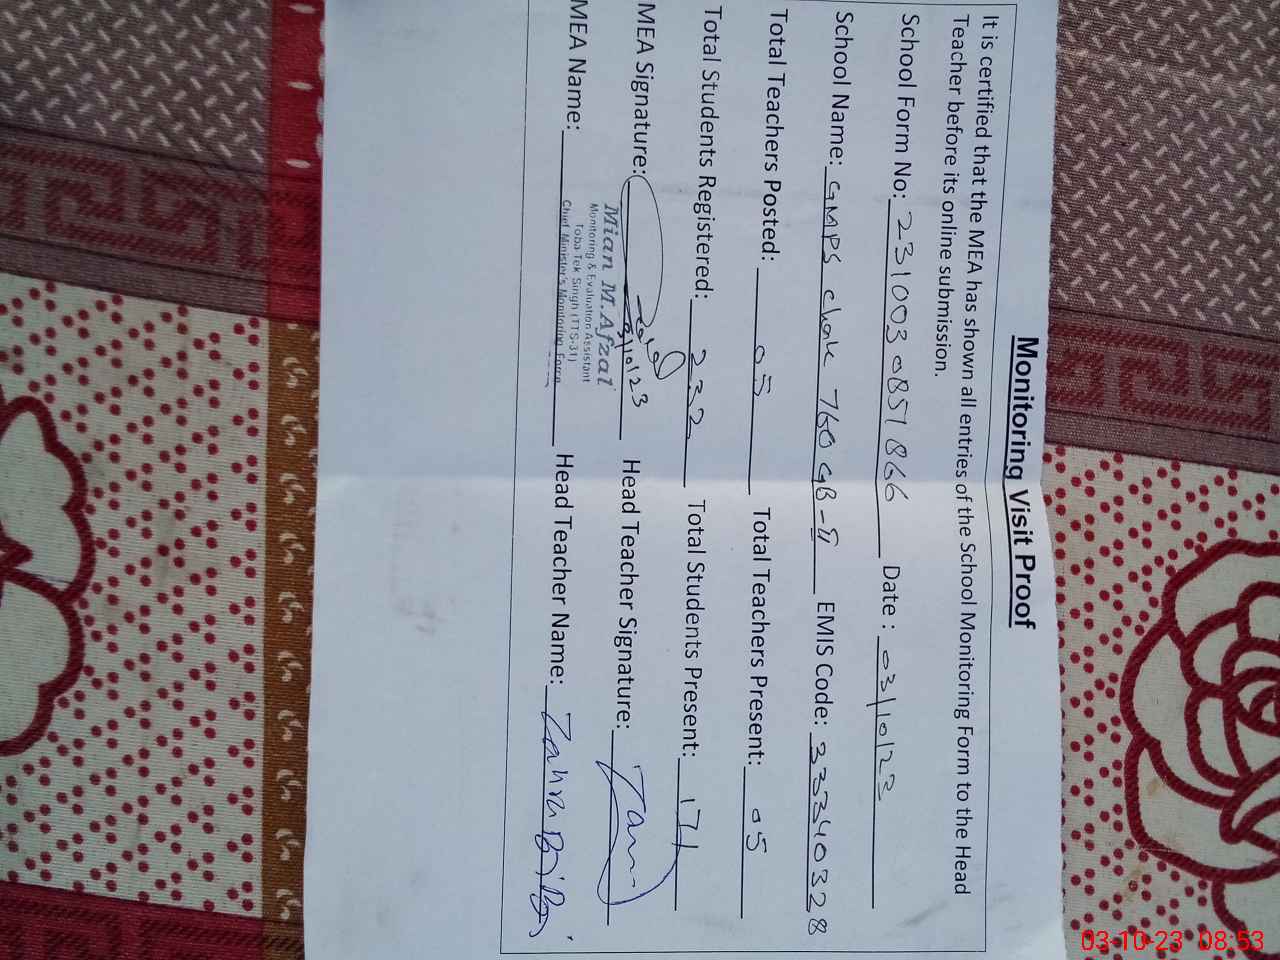 Monitoring Visit Proof
It is certified that the MEA has shown all entries of the School Monitoring Form to the Head
Teacher before its online submission.
School Form No: 2310030851866 Date : 03/10/23
School Name: GMPS chak 760 GB-II EMIS Code: 33340328
Total Teachers Posted: 05 Total Teachers Present: 05
Total Students Registered: 232 Total Students Present: 171
MEA Signature: 3/10/23 Head Teacher Signature:
Mian M. Afzal
Monitoring & Evaluation Assistant
Toba Tek Singh (TTS-31)
Chief Minister's Monitoring Force
MEA Name: Head Teacher Name: Zahra Bibi
03-10-23 08:53